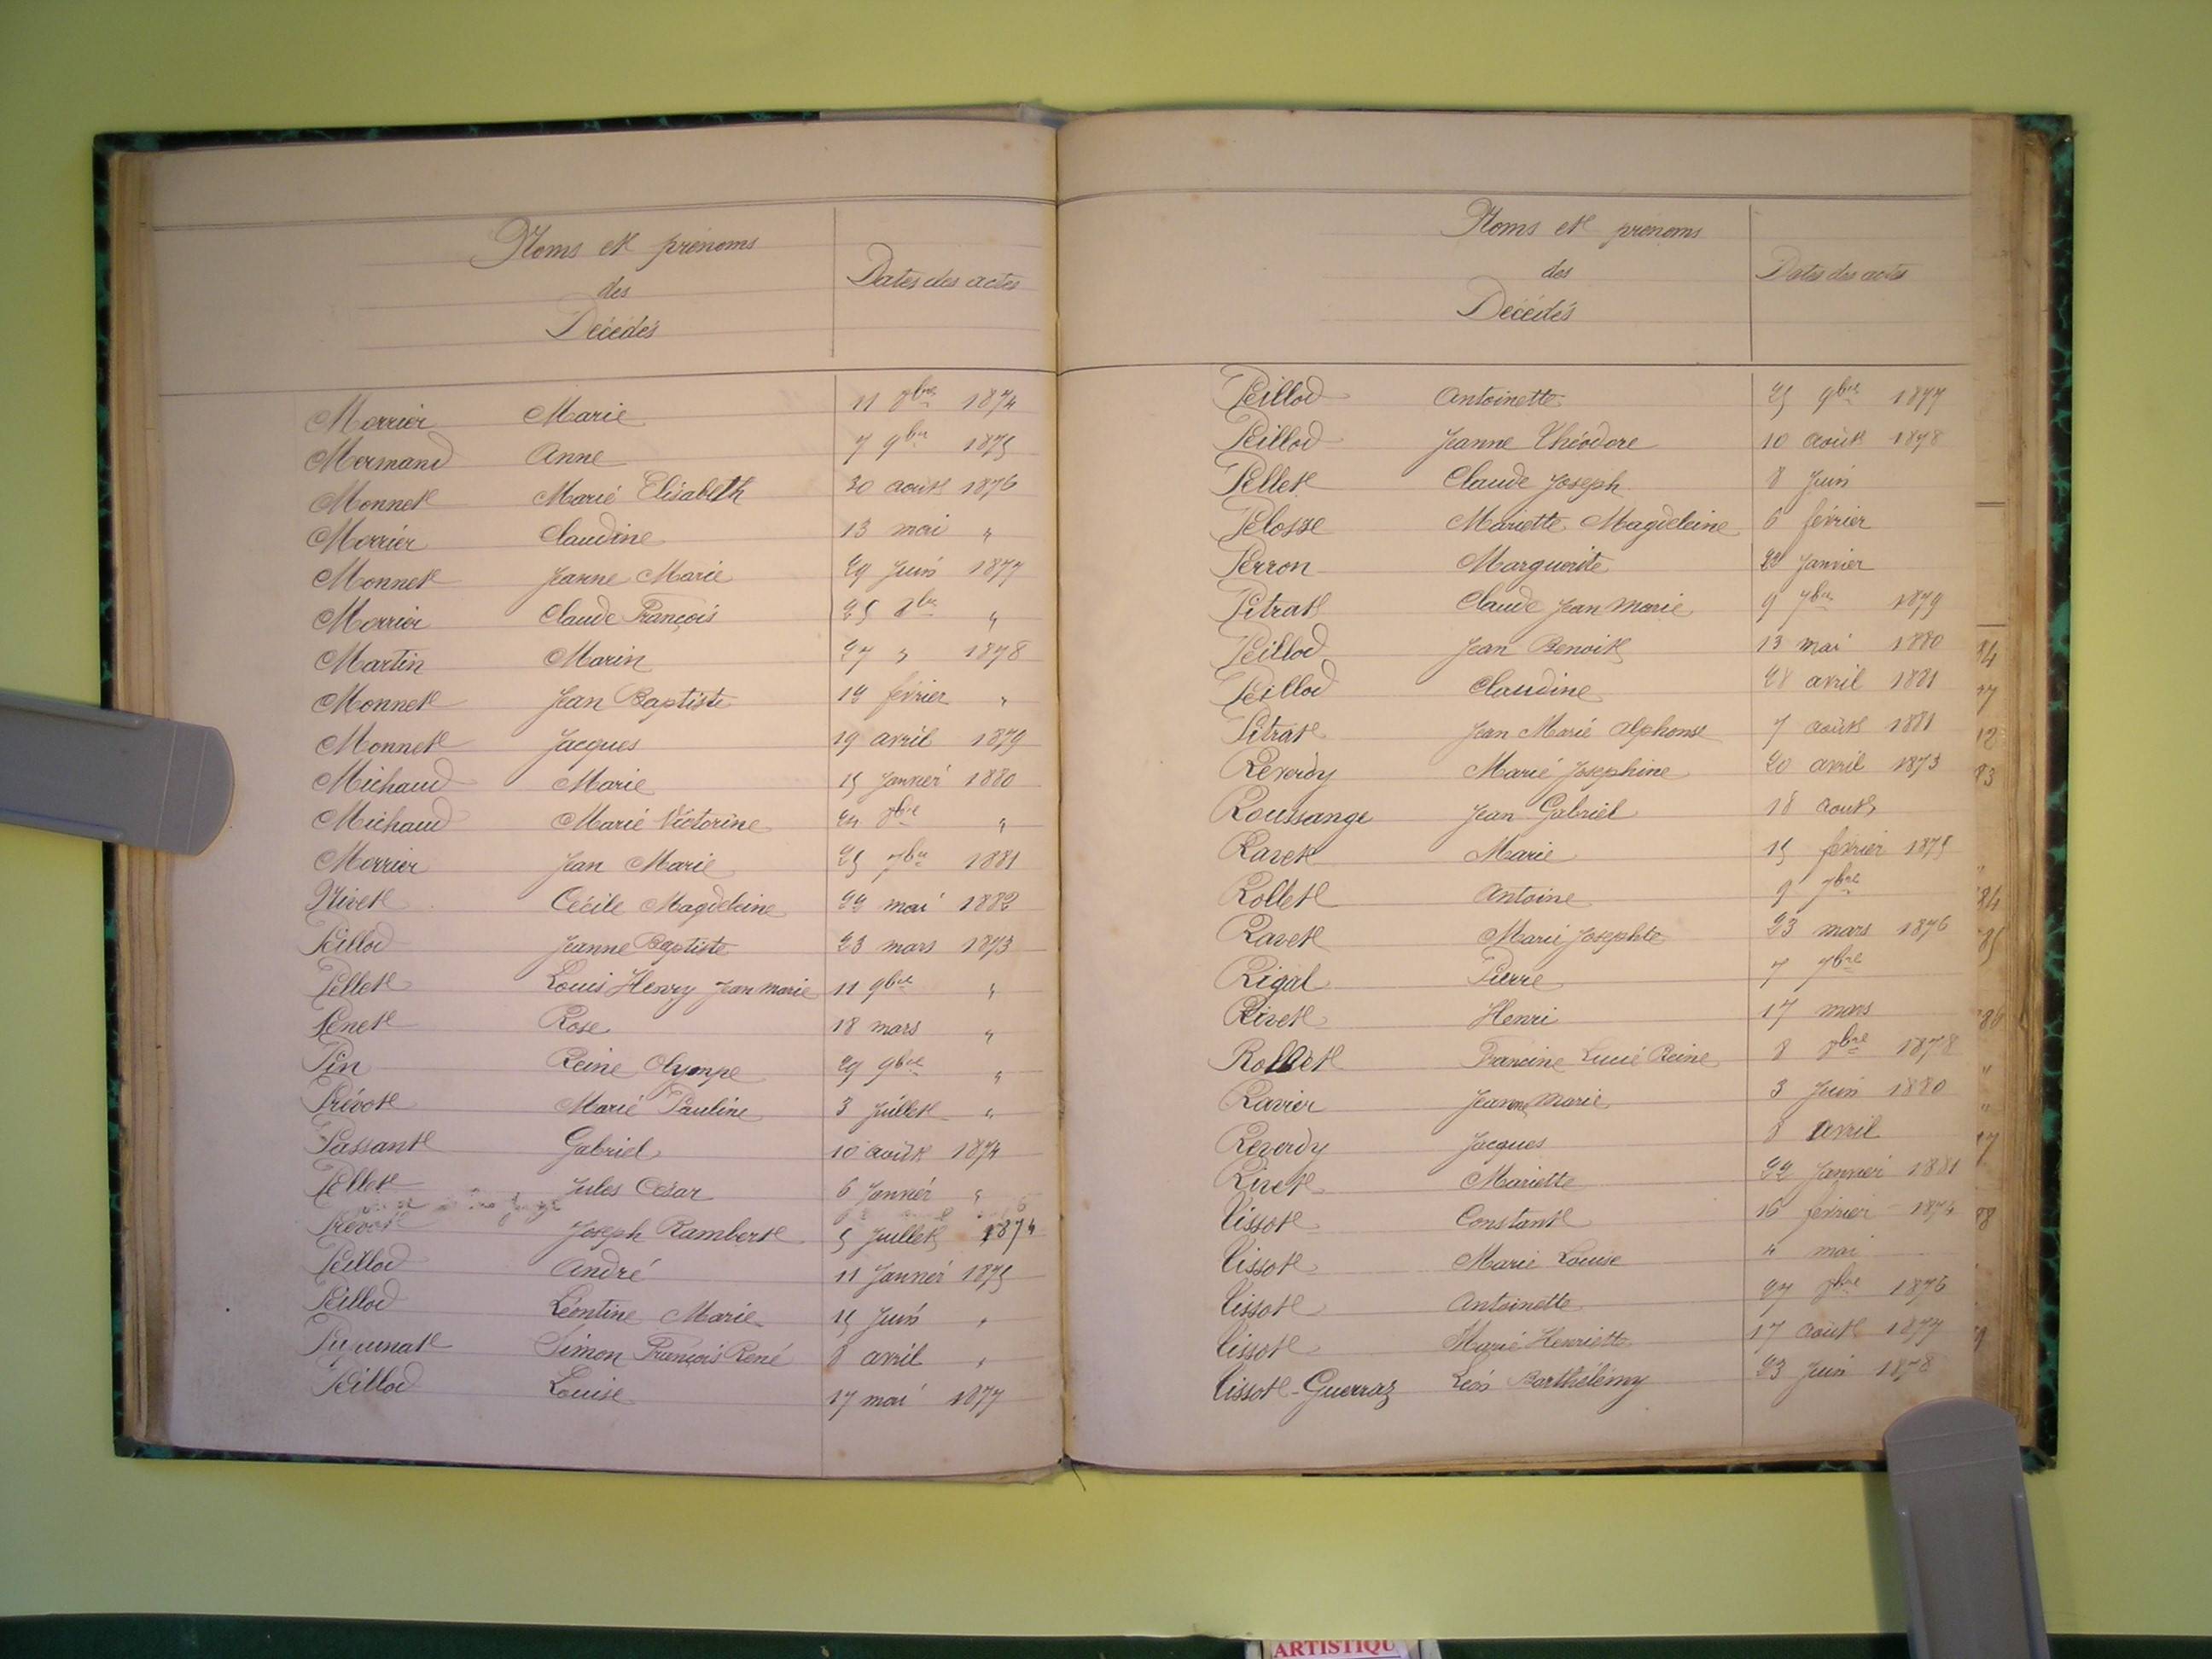 Noms et prénoms
des
Décédés
Dates des actes
Morrier Marie 11 7bre 1874
Mermand Anne 7 9bre 1875
Monnet Marie Elisabeth 30 août 1876
Morrier Claudine 13 mai "
Monnet Jeanne Marie 29 Juin 1877
Morrier Claude François 25 8bre "
Martin Marin 27 " 1878
Monnet Jean Baptiste 19 février "
Monnet Jacques 19 avril 1879
Michaud Marie 15 Janvier 1880
Michaud Marie Victorine 24 8bre "
Morrier Jean Marie 25 7bre 1881
Nivet Cécile Magdeleine 22 mai 1882
Peillod Jeanne Baptiste 23 mars 1873
Pellet Louis Henry Jean marie 11 9bre "
Penet Rose 18 mars "
Pin Reine Olympe 29 9bre "
Prévot Marie Pauline 3 Juillet "
Passant Gabriel 10 août 1874
Pellet Jules César 6 Janvier "
Prévot Joseph Rambert 5 Juillet 1874
Peillod André 11 Janvier 1875
Peillod Léontine Marie 15 Juin "
Simon François René 8 avril "
Peillod Louise 17 mai 1877
Noms et prénoms
des
Décédés
Dates des actes
Peillod Antoinette 25 9bre 1877
Peillod Jeanne Théodore 10 août 1878
Pellet Claude Joseph 8 Juin
Pelosse Mariette Magdeleine 6 février
Perron Marguerite 22 Janvier
Pitrat Claude Jean Marie 9 7bre 1879
Peillod Jean Benoit 13 mai 1880
Peillod Claudine 28 avril 1881
Pitrat Jean Marie Alphonse 7 août 1881
Reverdy Marie Josephine 20 avril 1873
Roussange Jean Gabriel 18 aout
Ravet Marie 15 février 1875
Rollet Antoine 9 7bre
Ravet Marie Josephte 23 mars 1876
Rigal Pierre 7 7bre
Rivet Henri 17 mars
Rollet Francine Lucie Reine 8 8bre 1878
Ravier Jeanne Marie 3 Juin 1880
Reverdy Jacques 8 avril
Rivet Mariette 22 Janvier 1881
Tissot Constant 16 février 1874
Tissot Marie Louise 4 mai
Tissot Antoinette 27 8bre 1876
Tissot Marie Henriette 17 août 1877
Tissot-Guerraz Léon Barthélémy 23 Juin 1878
ARTISTIQU